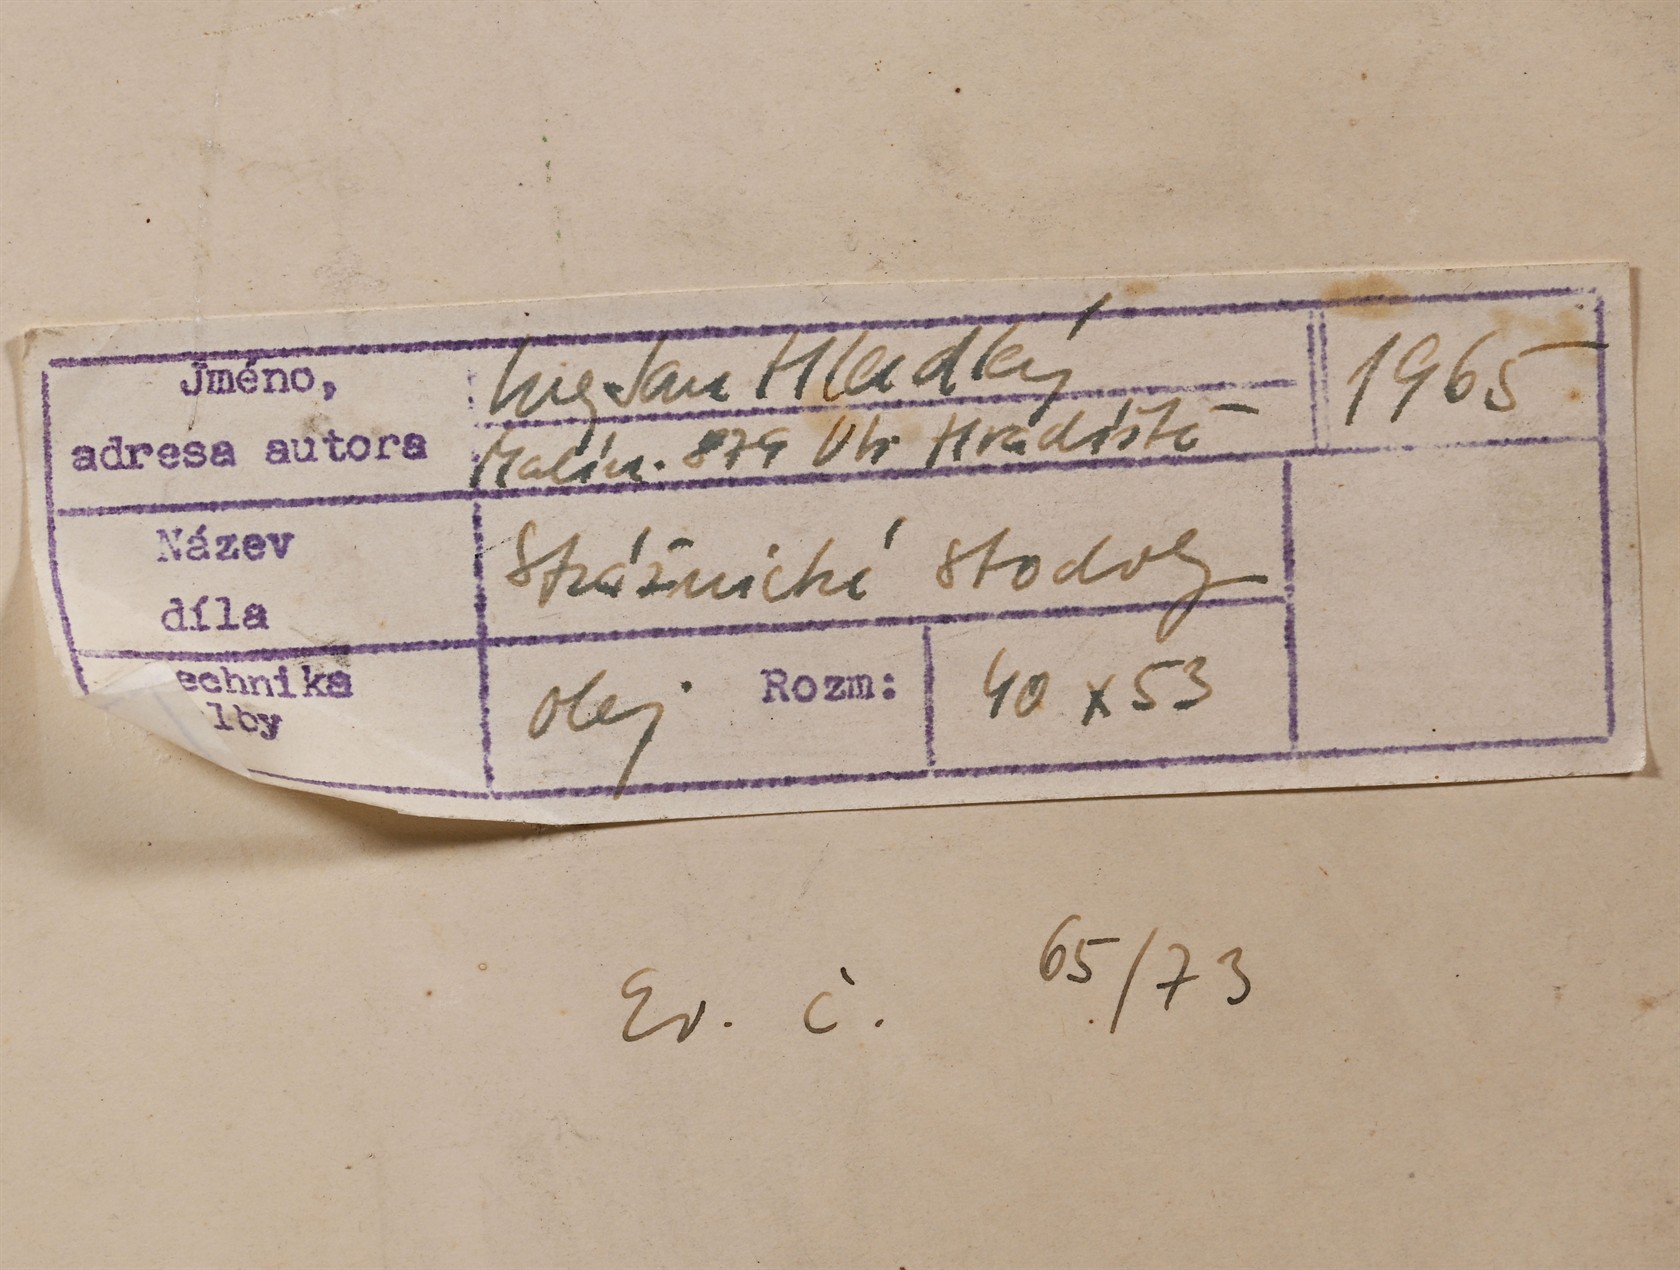 Jméno,
Jan Hladký
1965
adresa autora
Malin. 879 Uh. Hradiště
Název
díla
Strážnické stodoly
echnika
olej Rozm: 40 x 53
lby
Ev. č. 65/73